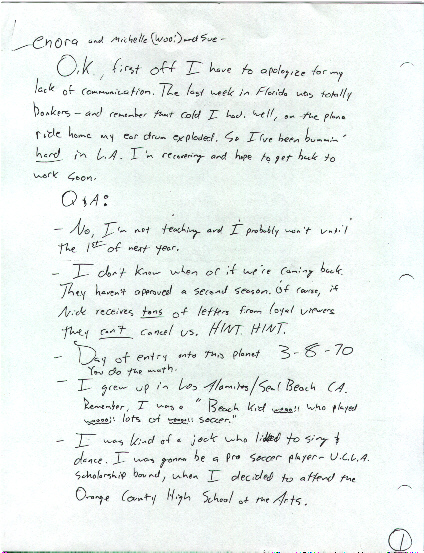 enora and michelle (woo!) and Sue -
O.K., first off I have to apologize for my
lack of communication. The last week in Florida was totally
bonkers - and remember that cold I had. Well, on the plane
ride home my ear drum exploded. So I've been bummin'
hard in L.A. I'm recovering and hope to get back to
work soon.
Q & A:
- No, I'm not teaching and I probably won't until
the 1st of next year.
- I don't know when or if we're coming back.
They haven't approved a second season. Of course, if
Nick receives tons of letters from loyal viewers
they can't cancel us. HINT. HINT.
- Day of entry onto this planet 3-8-70
You do the math.
- I grew up in Los Alamitos/Seal Beach CA.
Remember, I was a "Beach Kid who played
lots of soccer."
- I was kind of a jock who liked to sing &
dance. I was gonna be a pro soccer player - U.C.L.A.
scholarship bound, when I decided to attend the
Orange County High School of the Arts.
1